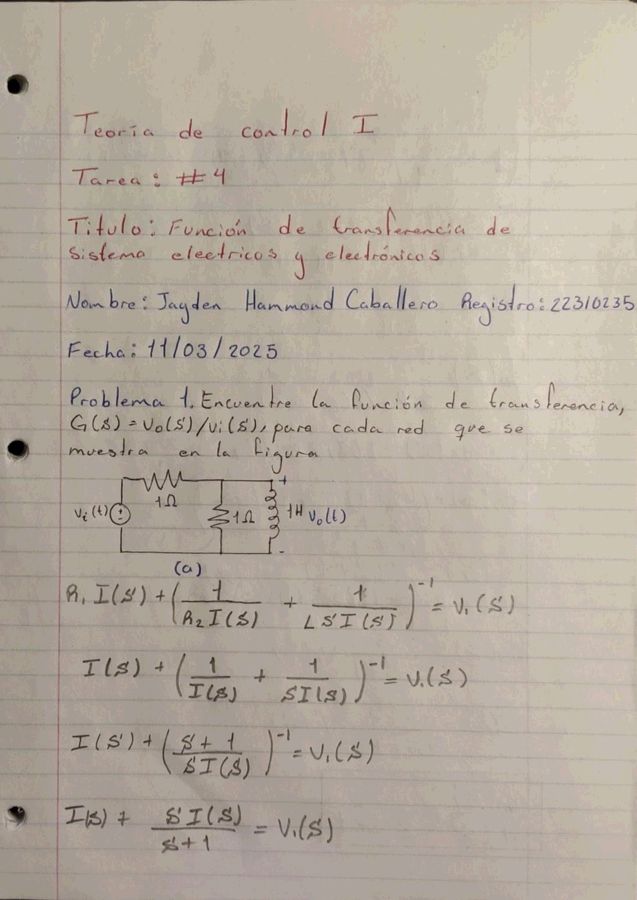 Teoría de control I
Tarea: #4
Titulo: Función de transferencia de
sistema electricos y electrónicos
Nombre: Jayden Hammond Caballero Registro: 22310235
Fecha: 11/03/2025
Problema 1. Encuentre la función de transferencia,
G(s) = Vo(s)/Vi(s), para cada red que se
muestra en la figura
Vi(t) 1Ω 1Ω 1H Vo(t) + -
(a)
R₁ I(s) + (1/(R₂ I(s)) + 1/(L s I(s)))⁻¹ = Vi(s)
I(s) + (1/I(s) + 1/(s I(s)))⁻¹ = Vi(s)
I(s) + ((s+1)/(s I(s)))⁻¹ = Vi(s)
I(s) + (s I(s))/(s+1) = Vi(s)